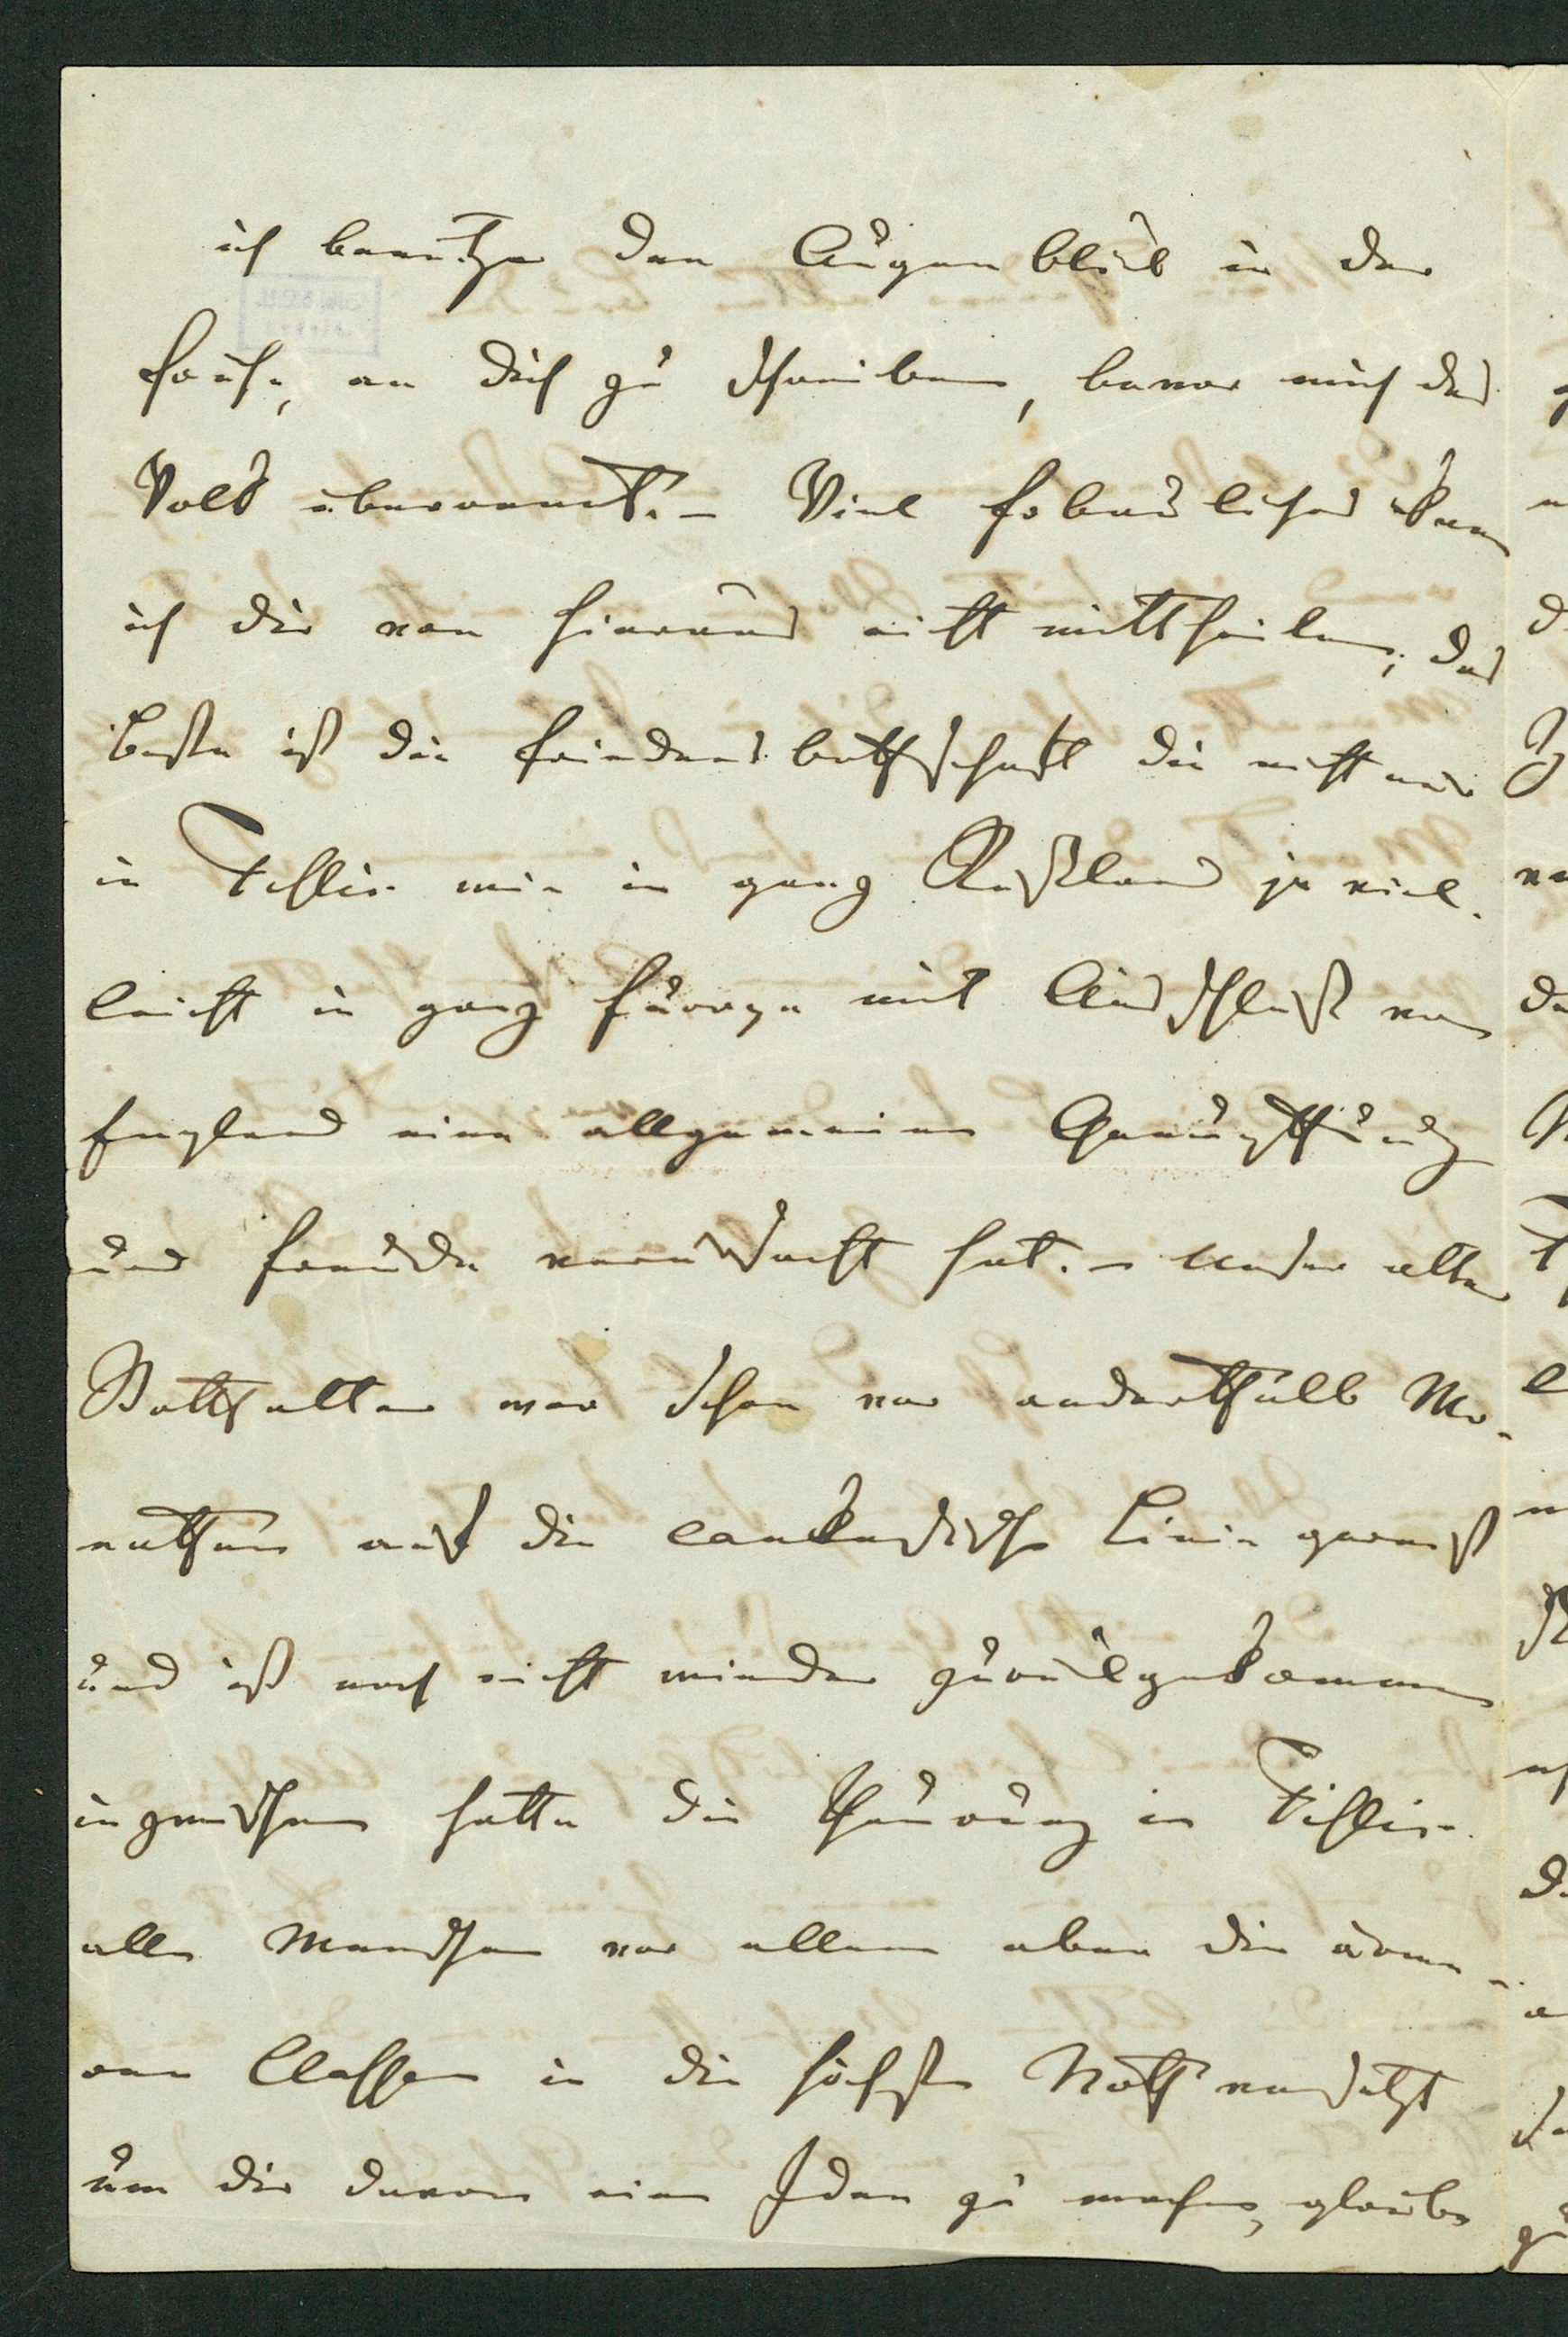 ich benutze den Augenblick in der
Frühe, an dich zu schreiben, bevor mich das
Volk überrennt. – Viel Erbauliches kann
ich dir von hieraus nicht mittheilen; das
beste ist die Friedensbothschaft die nicht nur
in Tiflis wie in ganz Rußland ja viel-
leicht in ganz Europa mit Ausschluß von
England eine allgemeine Genugthuung
und Freude verursacht hat. – Unser alter
Statthalter war schon vor anderthalb Mo-
nathen auf die caukasische Linie gereißt
und ist noch nicht wieder zurückgekommen
inzwischen hatte die Theurung in Tiflis
alle Menschen vor allem aber die ärme-
ren Classen in die höchste Noth versetzt
um dir davon eine Idee zu machen, glaube